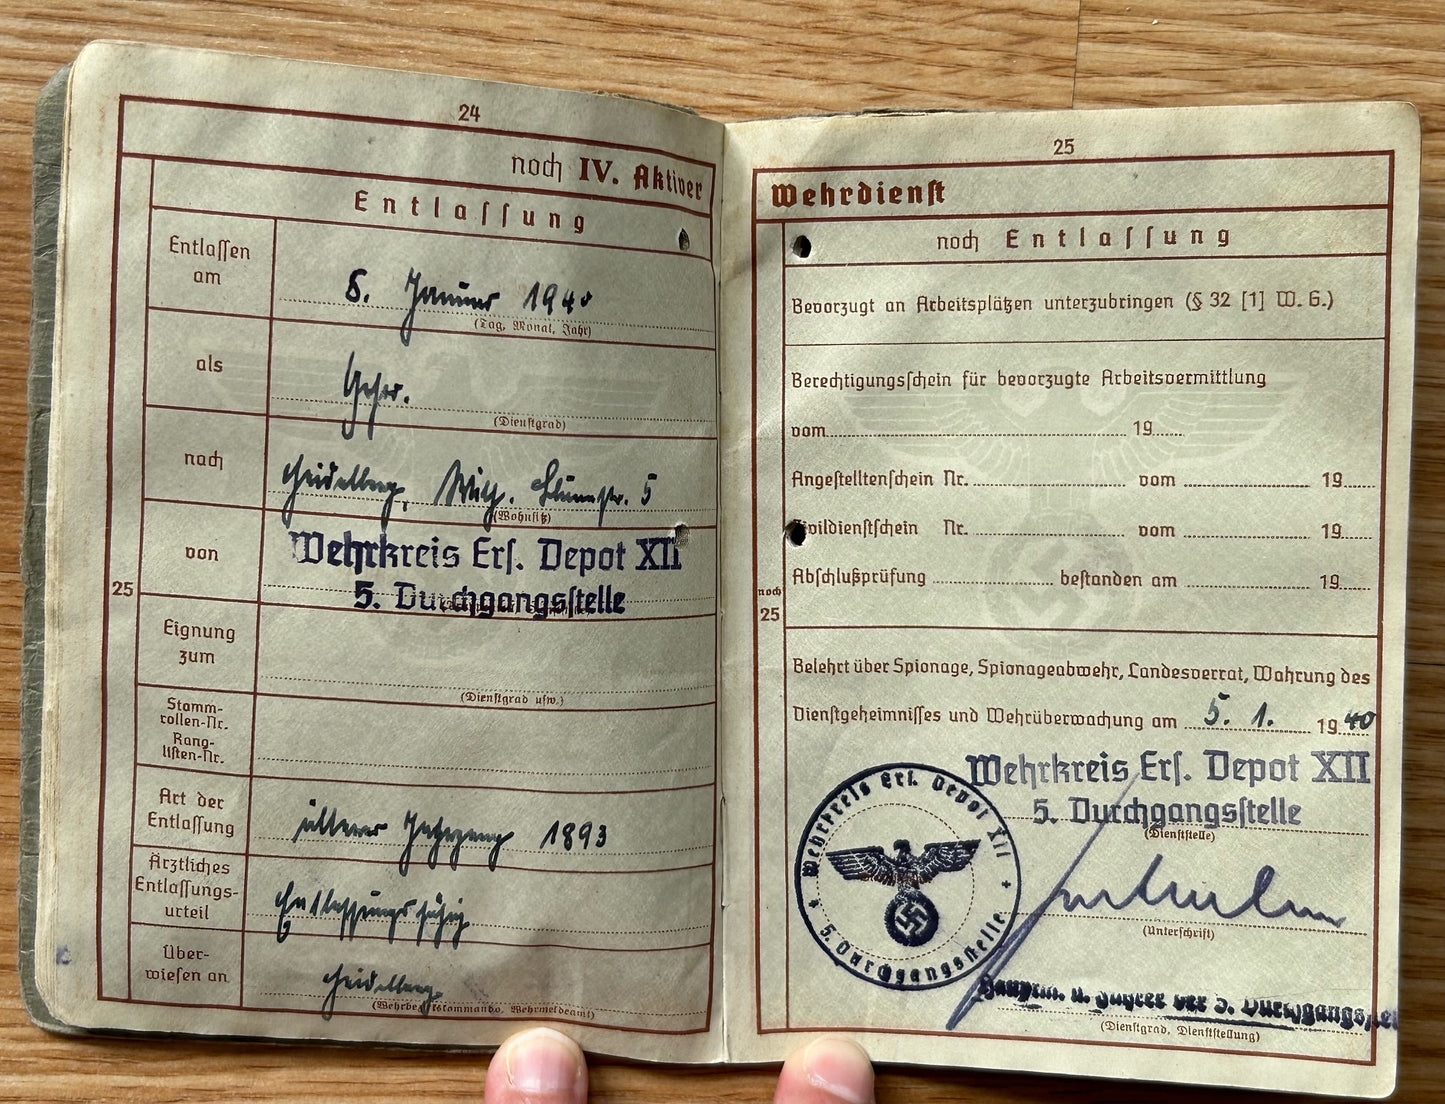 24
noch IV. Aktiver
Entlassung
Entlassen am
Januar 1940
(Tag, Monat, Jahr)
als
Gefr.
(Dienstgrad)
nach
Heidelberg, Wilh. Blumstr. 5
(Wohnsitz)
von
Wehrkreis Ers. Depot XII
5. Durchgangsstelle
25
Eignung zum
(Dienstgrad usw.)
Stamm-
rollen-Nr.
Rang-
listen-Nr.
Art der
Entlassung
älterer Jahrgang 1893
Ärztliches
Entlassungs-
urteil
Entlassungsfähig
Über-
wiesen an
Heidelberg
(Wehrbezirkskommando, Wehrmeldeamt)
25
Wehrdienst
noch Entlassung
Bevorzugt an Arbeitsplätzen unterzubringen (§ 32 [1] W. G.)
Berechtigungsschein für bevorzugte Arbeitsvermittlung
vom 19
Angestelltenschein Nr. vom 19
Zivildienstschein Nr. vom 19
Abschlußprüfung bestanden am 19
noch
25
Belehrt über Spionage, Spionageabwehr, Landesverrat, Wahrung des
Dienstgeheimnisses und Wehrüberwachung am 5. 1. 1940
Wehrkreis Ers. Depot XII
5. Durchgangsstelle
(Dienststelle)
Wehrkreis Ers. Depot XII
5. Durchgangsstelle
(Unterschrift)
Hauptm. u. Führer der 5. Durchgangsstelle
(Dienstgrad, Dienststellung)